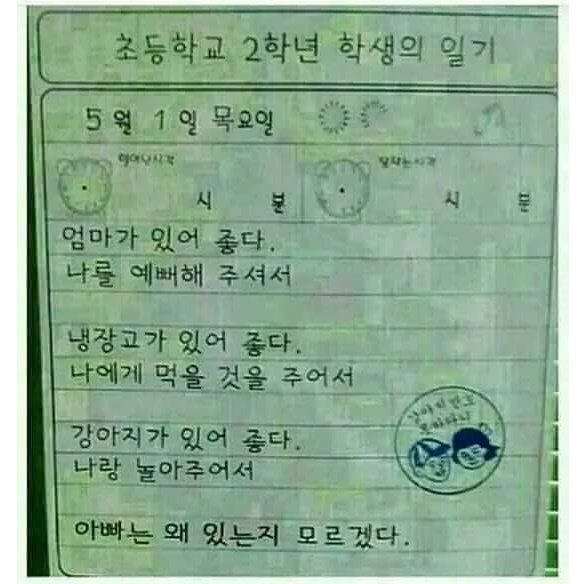 초등학교 2학년 학생의 일기
5월 1일 목요일
일어난시각
시 분
시 분
엄마가 있어 좋다.
나를 예뻐해 주셔서
냉장고가 있어 좋다.
나에게 먹을 것을 주어서
강아지가 있어 좋다.
나랑 놀아주어서
강아지만도
못하다니
아빠는 왜 있는지 모르겠다.